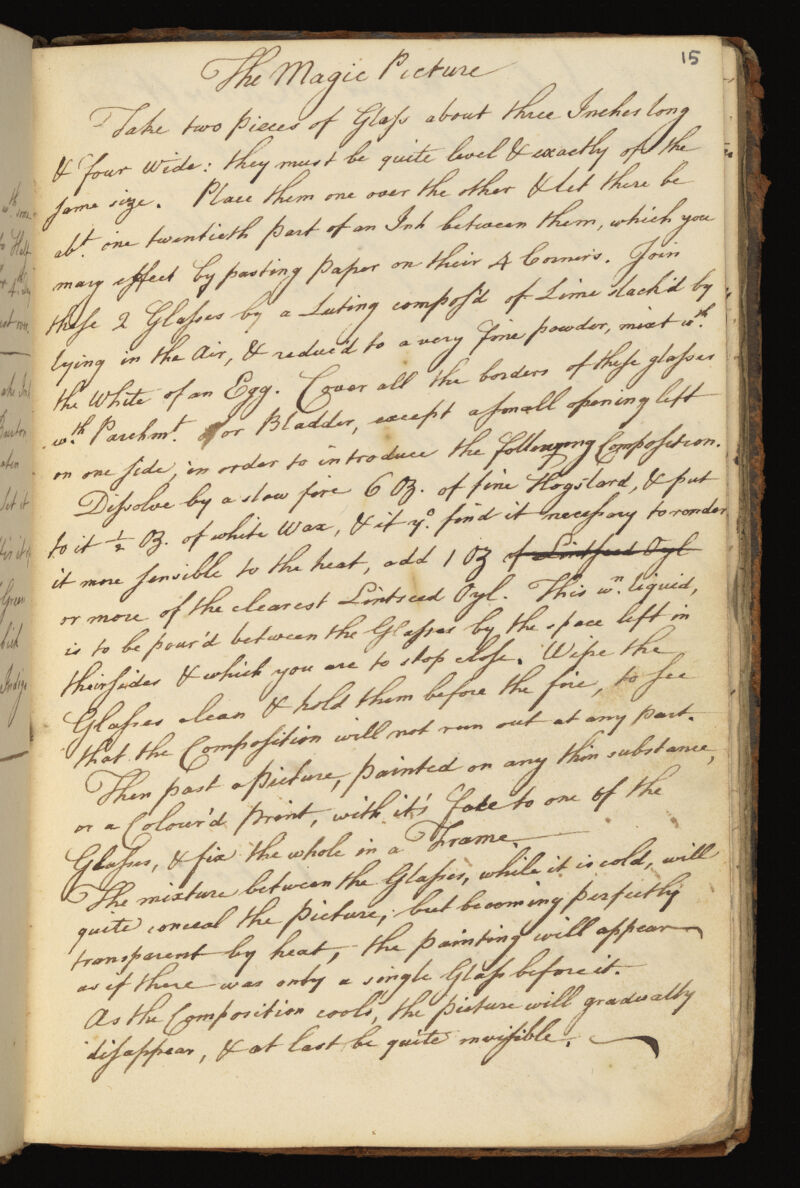 15
The Magic Picture
Take two pieces of Glass about three Inches long
& four wide: they must be quite level & exactly of the
same size. Place them one over the other & let there be
abt. one twentieth part of an Inh between them, which you
may effect by pasting paper on their 4 Corners. Join
these 2 Glasses by a Luting compos'd of Lime slack'd by
lying in the Air, & reduc'd to a very fine powder, mixt wth.
the White of an Egg. Cover all the borders of these glasses
wth. Parchmt. or Bladder, except a small opening left
on one side, in order to introduce the following Composition.
Dissolve by a slow fire 6 oz. of fine Hogslard, & put
to it ½ oz. of white Wax, & if yo. find it necessary to render
it more sensible to the heat, add 1 oz of Lintseed Oyl
or more of the clearest Lintseed Oyl. This wn. liquid,
is to be pour'd between the Glasses by the space left in
their sides & which you are to stop close. Wipe the
Glasses clean & hold them before the fire, to see
that the Composition will not run out at any part.
Then past a picture, painted on any thin substance,
or a Colour'd print, with it's face to one of the
Glasses, & fix the whole in a Frame.
The mixture between the Glasses, while it is cold, will
quite conceal the picture; but becoming perfectly
transparent by heat, the painting will appear
as if there was only a single Glass before it.
As the Composition cools, the picture will gradually
disappear, & at last be quite invisible.
wth. some